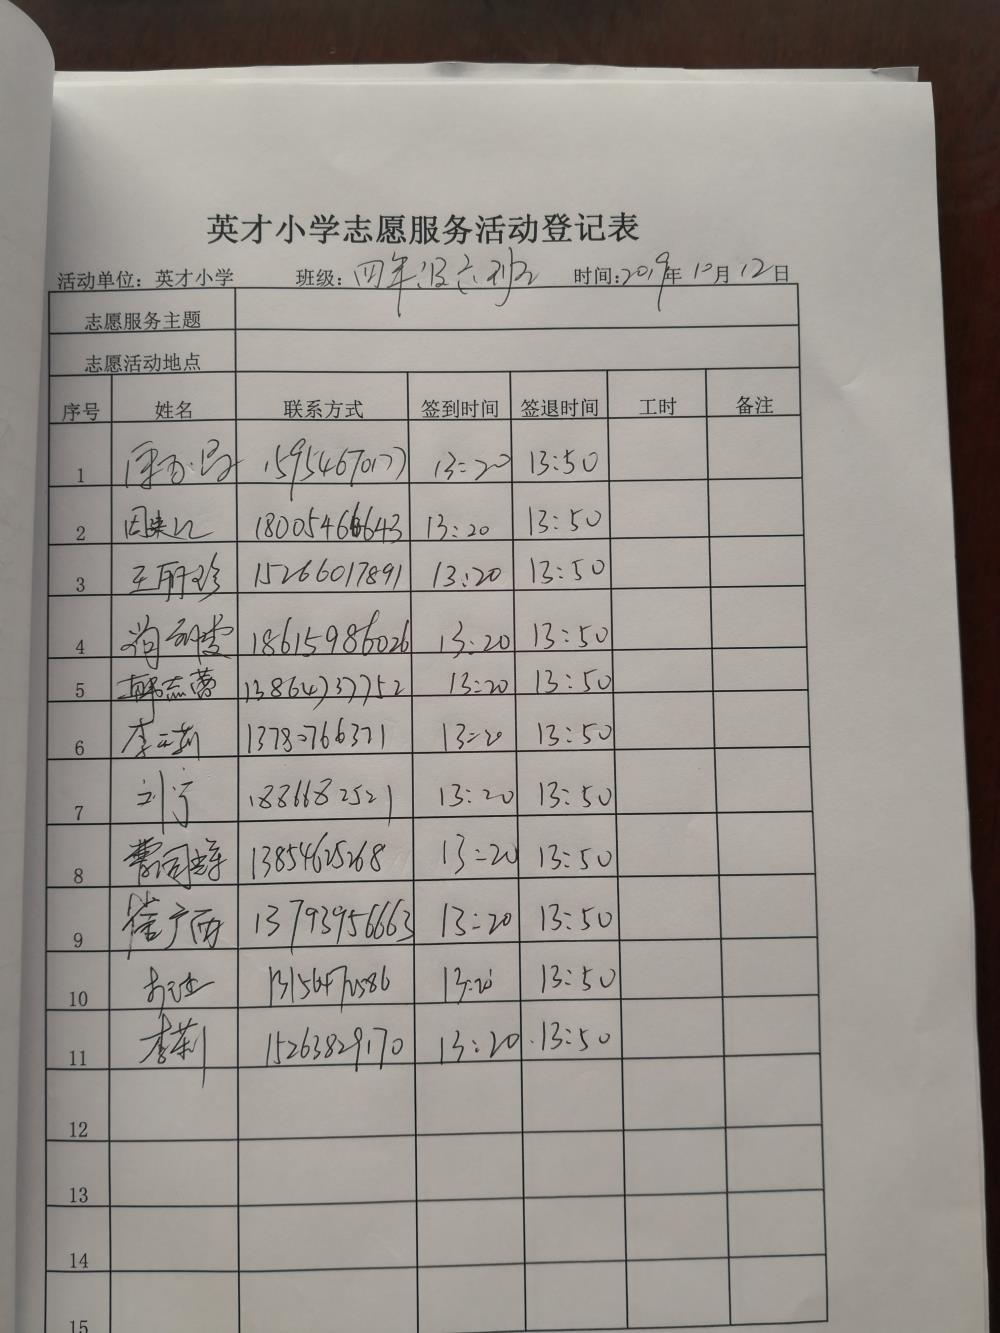 英才小学志愿服务活动登记表
活动单位：英才小学 班级：四年级六班 时间：2019年10月12日
志愿服务主题
志愿活动地点
序号 姓名 联系方式 签到时间 签退时间 工时 备注
1 13:20 13:50
2 18005466643 13:20 13:50
3 王丽珍 15266017891 13:20 13:50
4 18615986026 13:20 13:50
5 韩志蕾 13864737752 13:20 13:50
6 13780766371 13:20 13:50
7 刘宁 1886682521 13:20 13:50
8 13854625268 13:20 13:50
9 崔广西 13793956663 13:20 13:50
10 13:20 13:50
11 李莉 15263829170 13:20 13:50
12
13
14
15